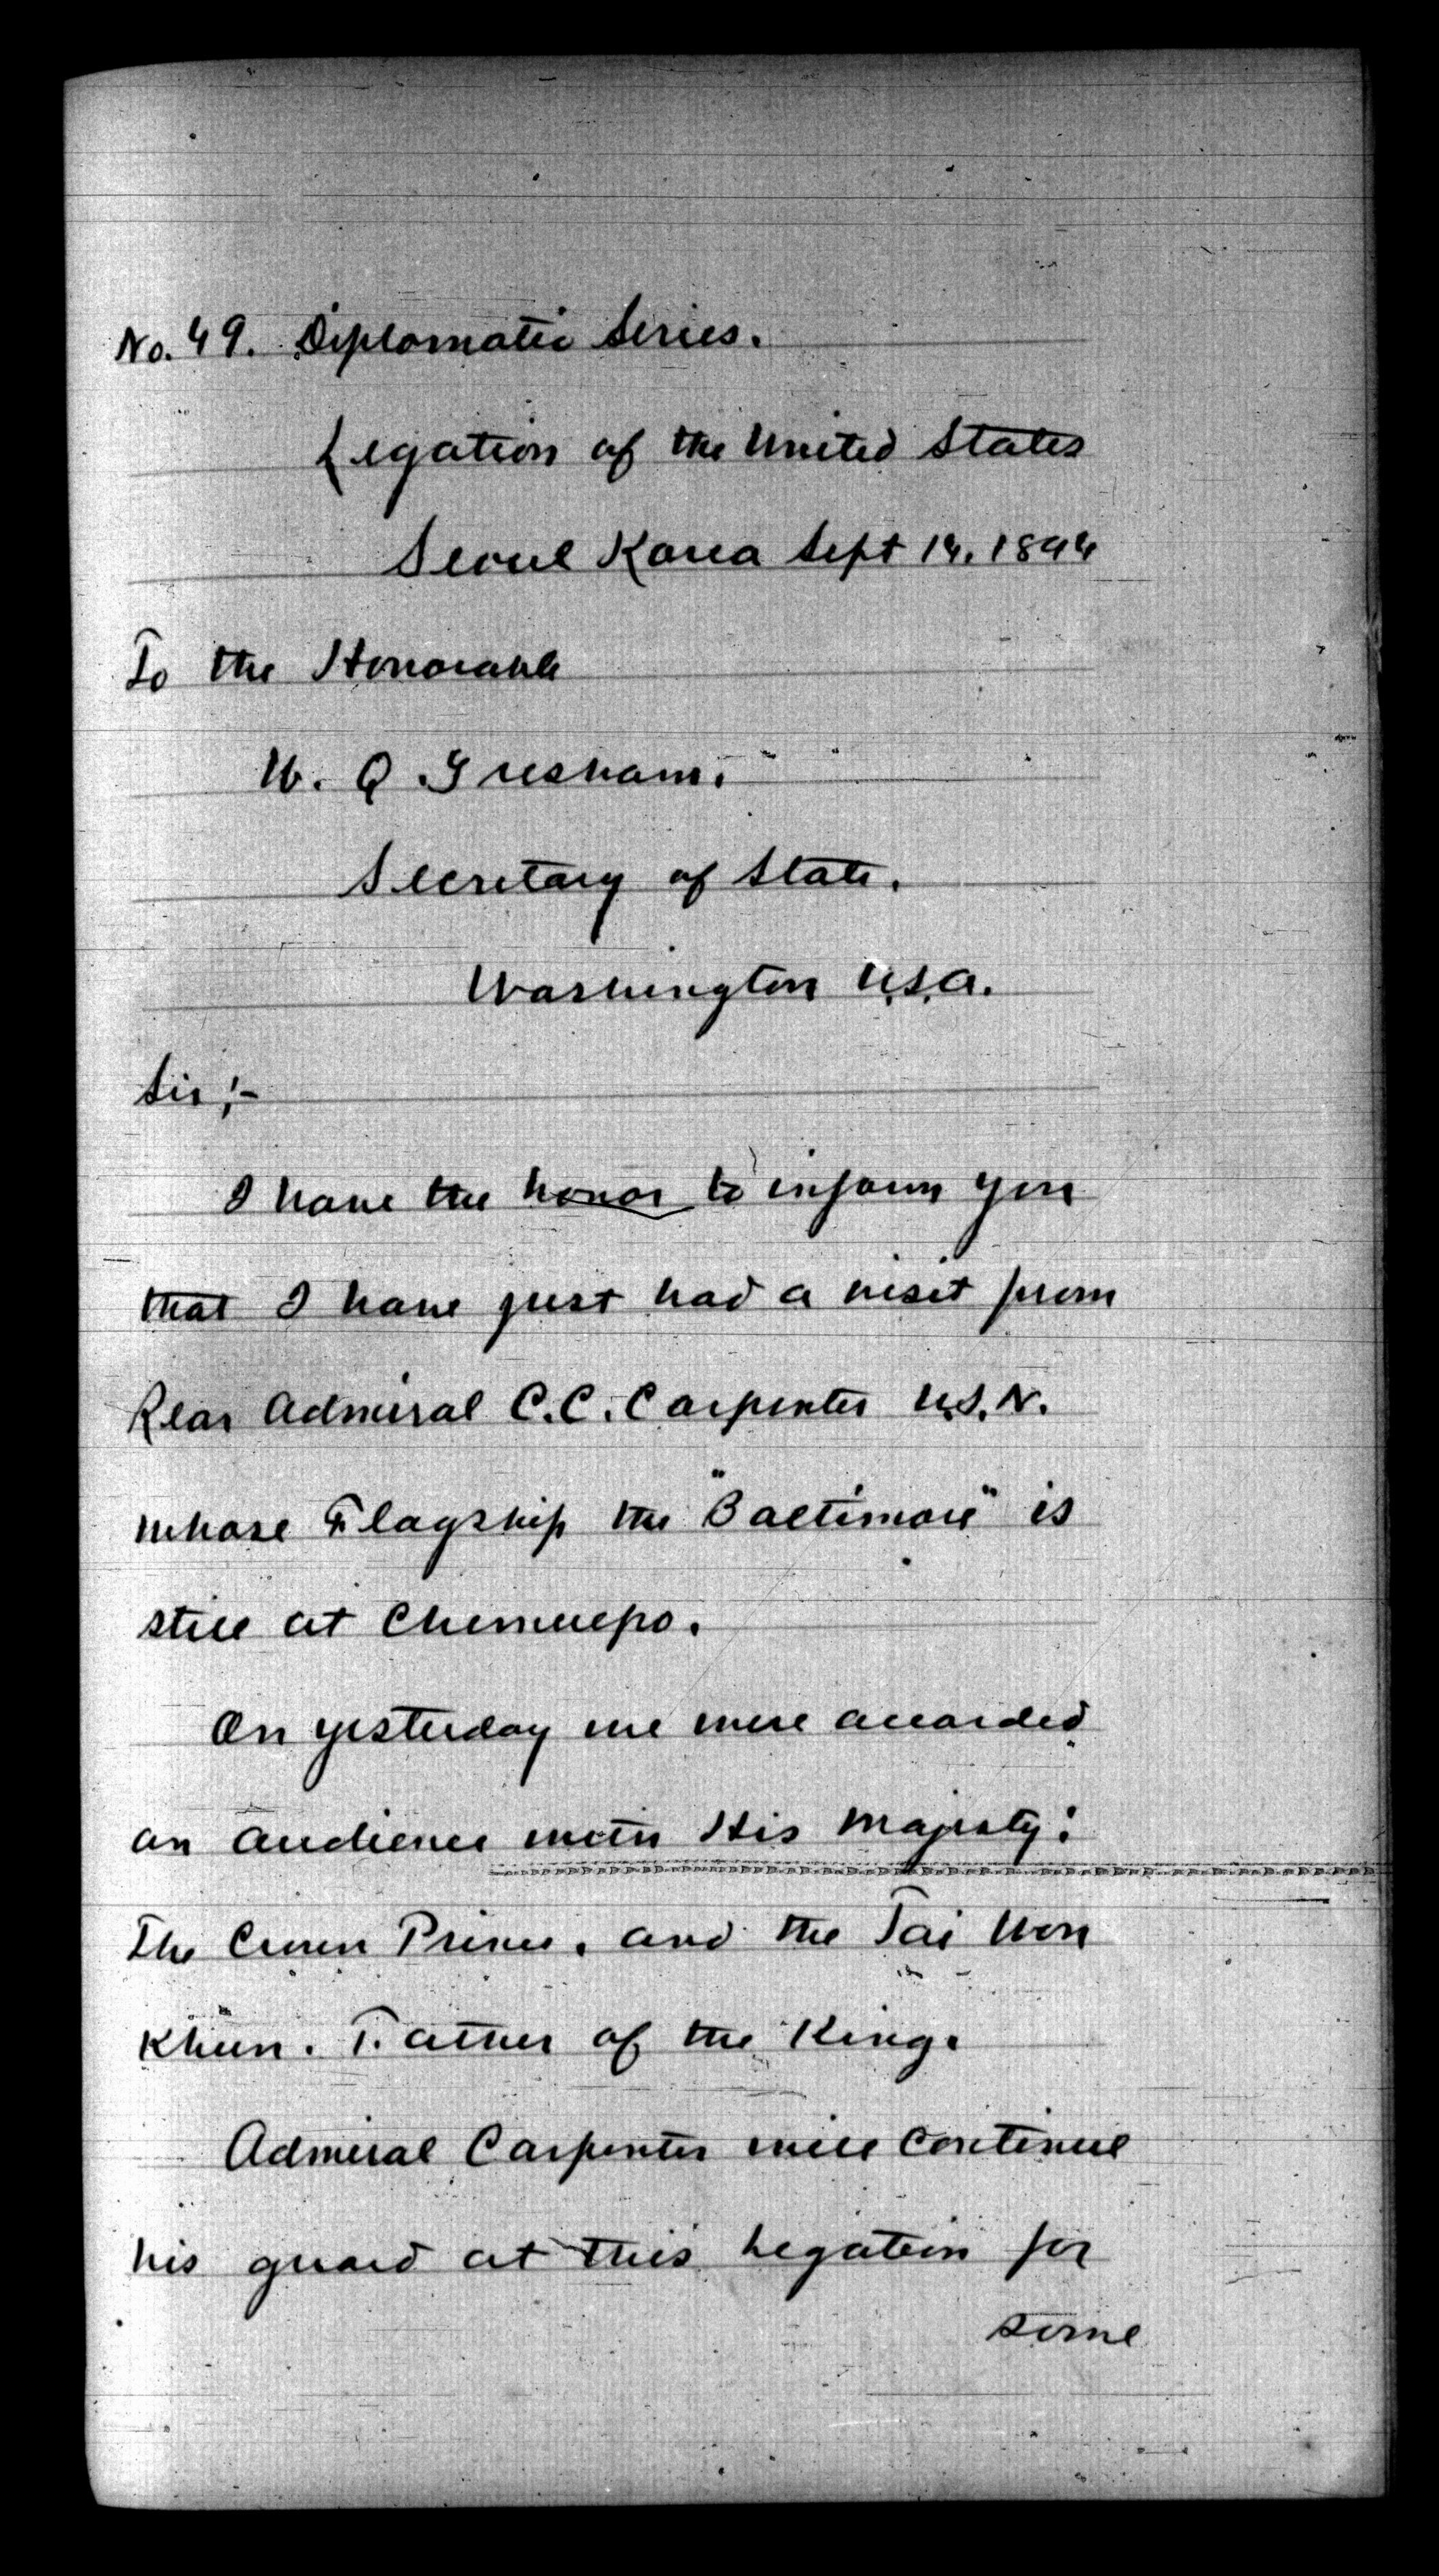 No. 49. Diplomatic Series.
Legation of the United States
Seoul Korea Sept 14. 1894
To the Honorable
W. Q. Gresham.
Secretary of State.
Washington U.S.A.
Sir;-
I have the honor to inform you
that I have just had a visit from
Rear Admiral C.C. Carpenter U.S.N.
whose Flagship the "Baltimore" is
still at Chemulpo.
On yesterday we were accorded
an audience with His Majesty:
The Crown Prince. and the Tai Won
Khun. Father of the King.
Admiral Carpenter will continue
his guard at this Legation for
some